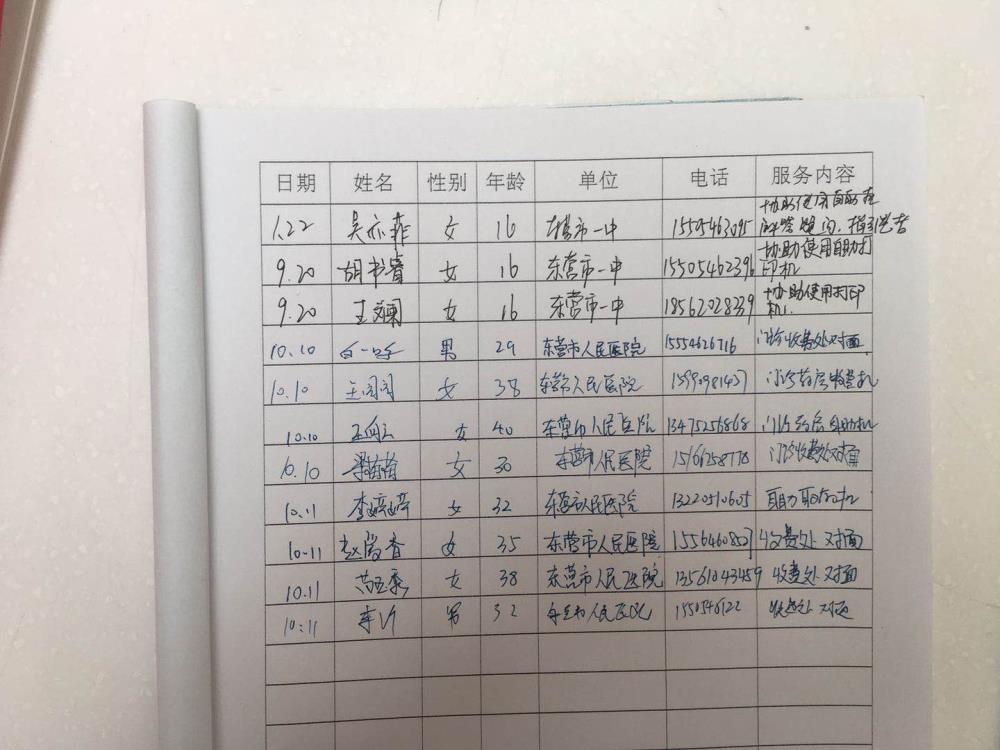 日期 姓名 性别 年龄 单位 电话 服务内容
1.22 吴亦菲 女 16 东营市一中 协助使用自助
9.20 胡书睿 女 16 东营市一中 15505462396 协助使用自助打
印机
9.20 王 女 16 东营市一中 18562028339 协助使用打印
机
10.10 男 29 东营市人民医院 15554626716 门诊收费处对面
10.10 王闵闵 女 38 东营市人民医院 门诊药房收费机
10.10 女 40 东营市人民医院 13475256868 门诊药房自助机
10.10 梁萌萌 女 30 东营市人民医院 15166258778 门诊收费处对面
10.11 李婷婷 女 32 东营市人民医院 13220510605 自助取机
10.11 赵霞香 女 35 东营市人民医院 15564608527 收费处对面
10.11 女 38 东营市人民医院 13561043459 收费处对面
10:11 李 男 32 人民医院 1550546122 对面